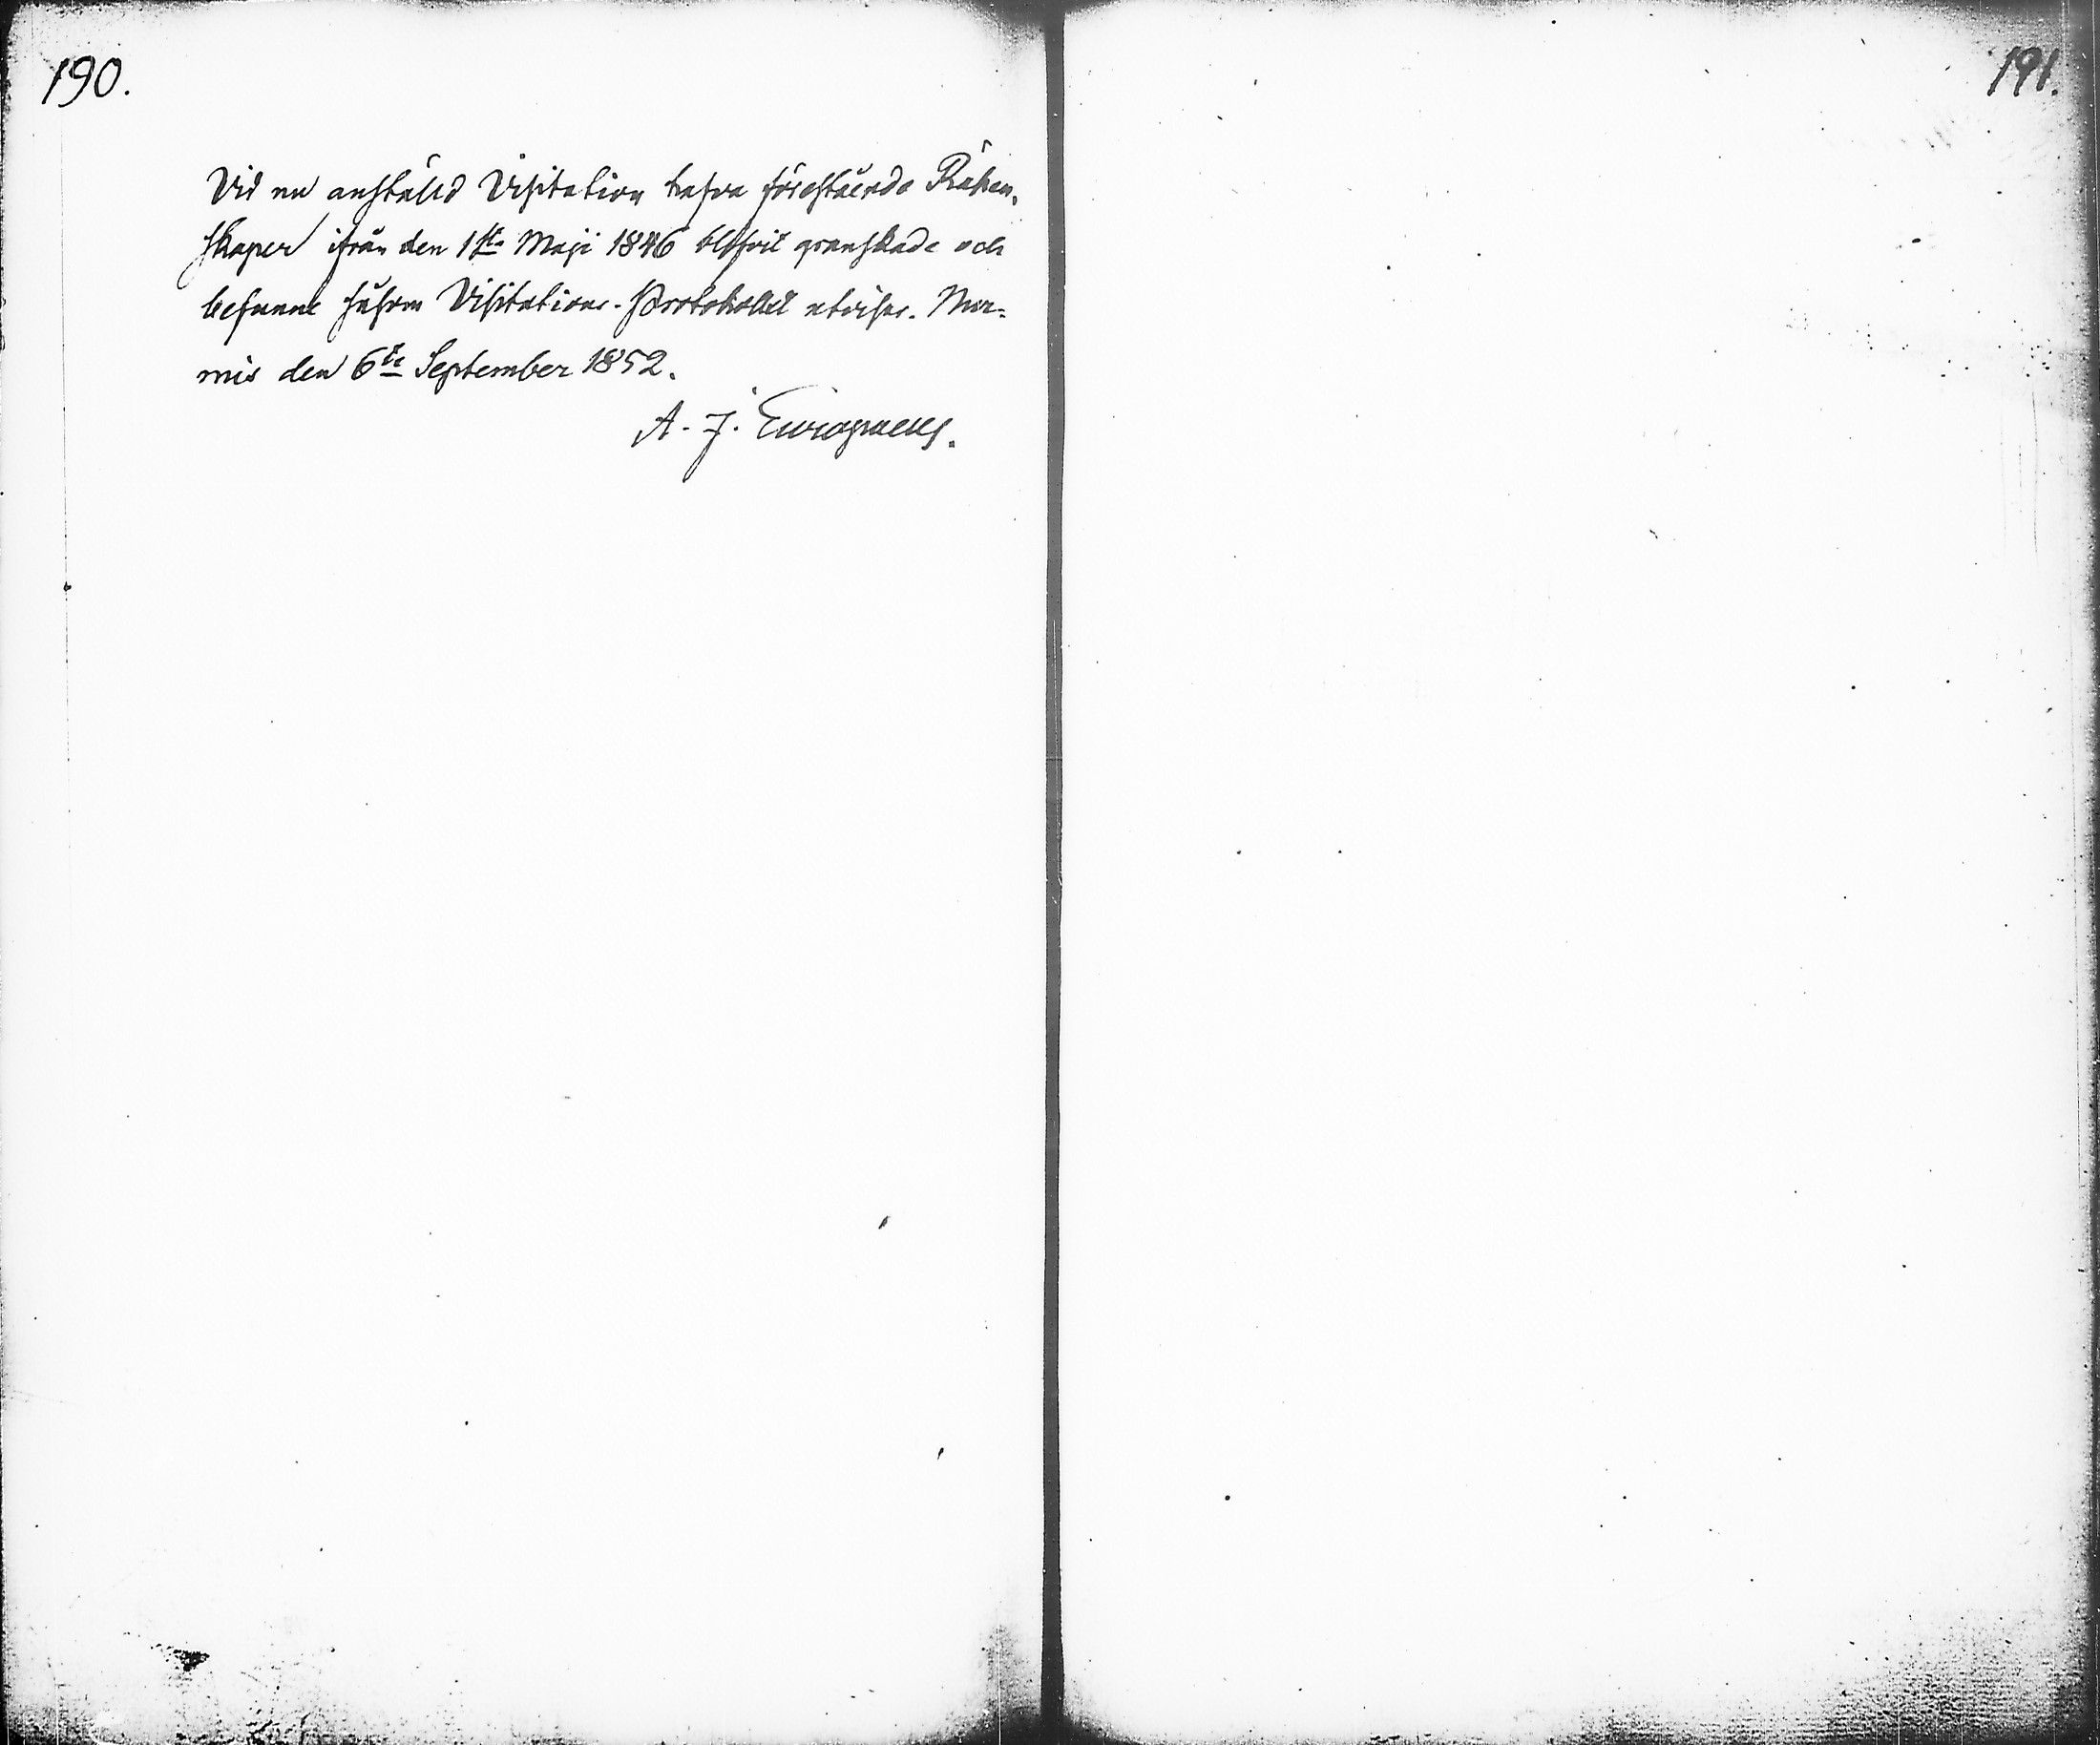 190.
Vid nu anstäld Visitation hafva förestående Räken-
skaper ifrån den 1sta Maji 1846 blifvit granskade och
befunne såsom Visitations-Protokollet utvisar. Nur-
mis den 6te September 1852.
A. J. Europaeus.
191.